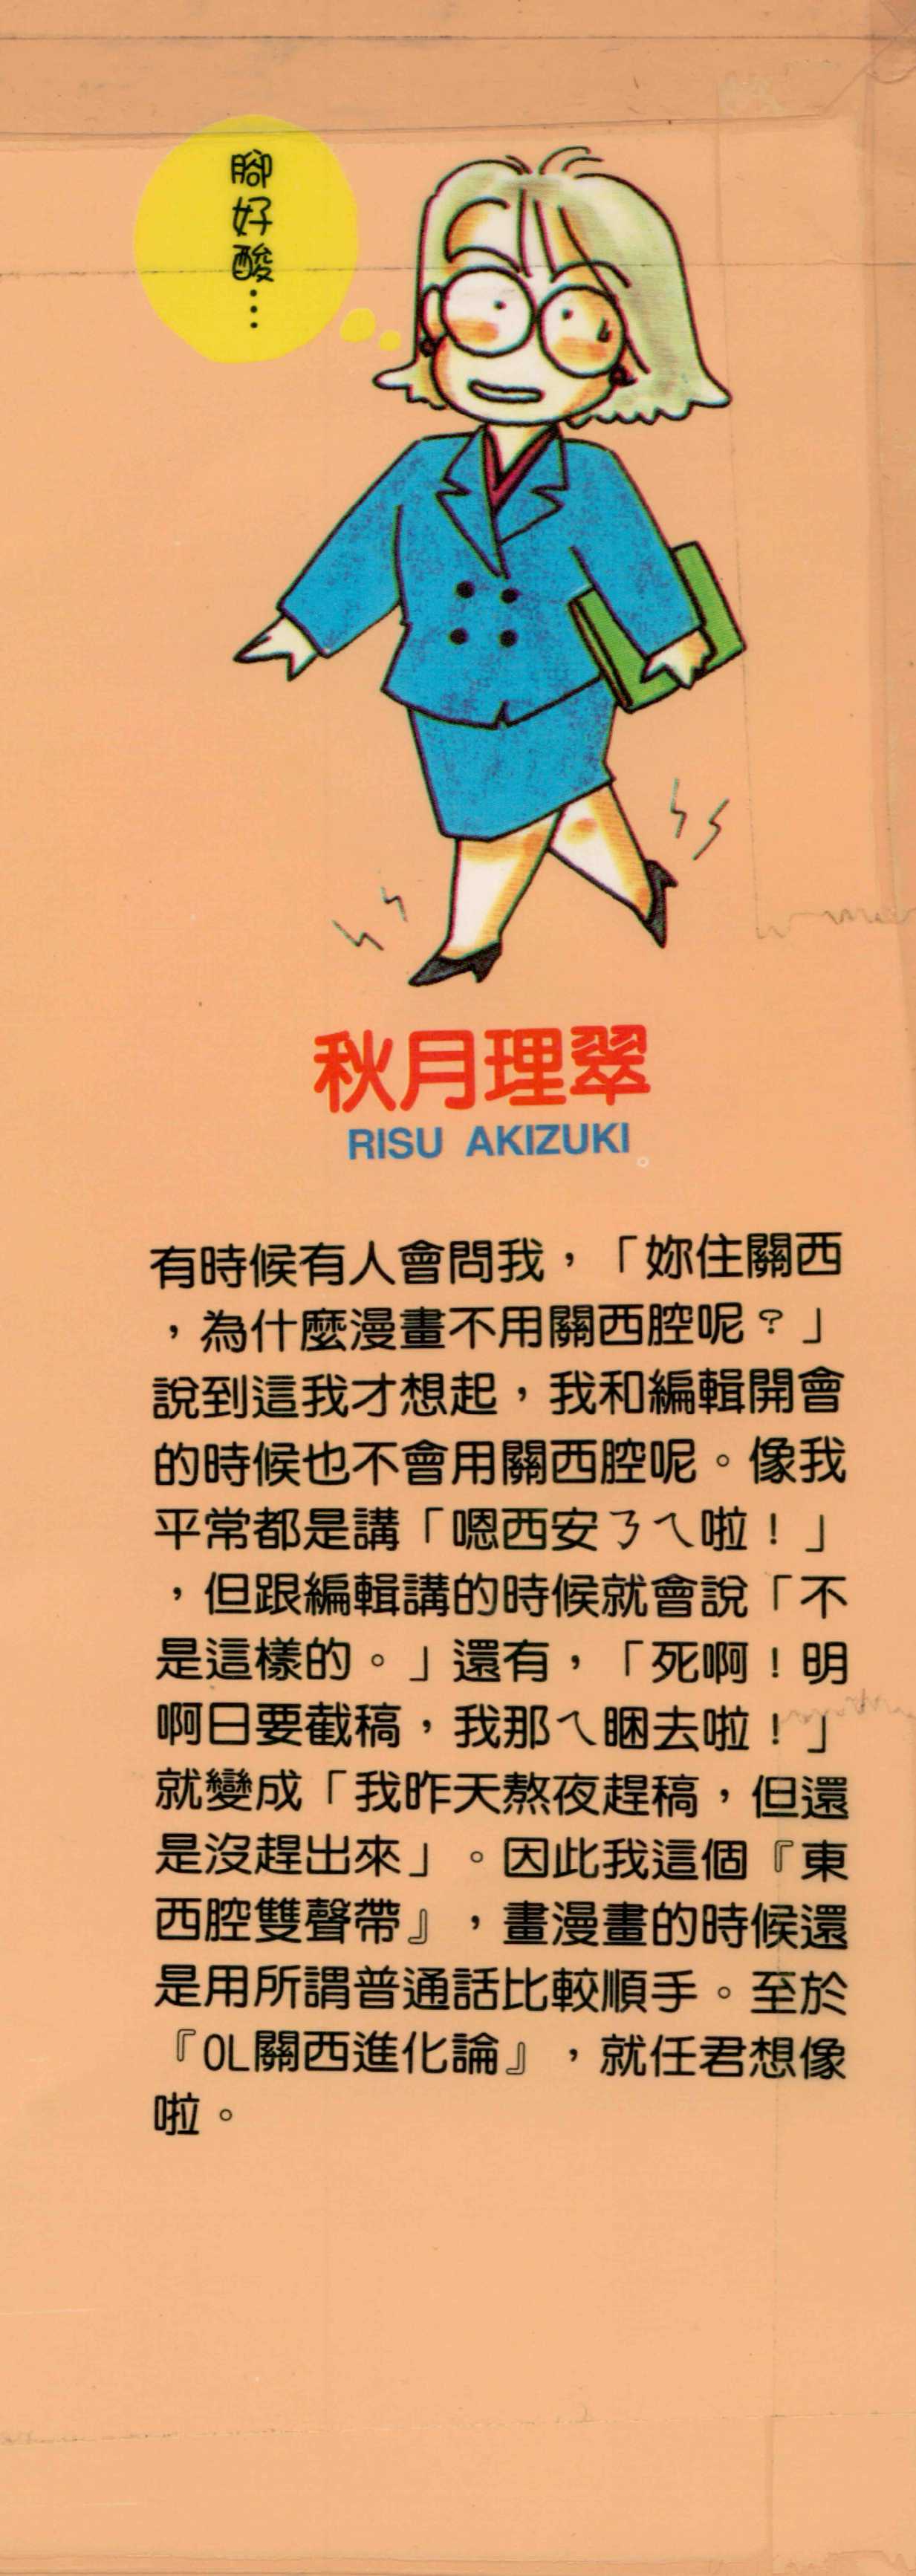 腳好酸…
秋月理翠
RISU AKIZUKI
有時候有人會問我，「妳住關西
，為什麼漫畫不用關西腔呢？」
說到這我才想起，我和編輯開會
的時候也不會用關西腔呢。像我
平常都是講「嗯西安ㄋㄟ啦！」
，但跟編輯講的時候就會說「不
是這樣的。」還有，「死啊！明
啊日要截稿，我那ㄟ睏去啦！」
就變成「我昨天熬夜趕稿，但還
是沒趕出來」。因此我這個『東
西腔雙聲帶』，畫漫畫的時候還
是用所謂普通話比較順手。至於
『OL關西進化論』，就任君想像
啦。